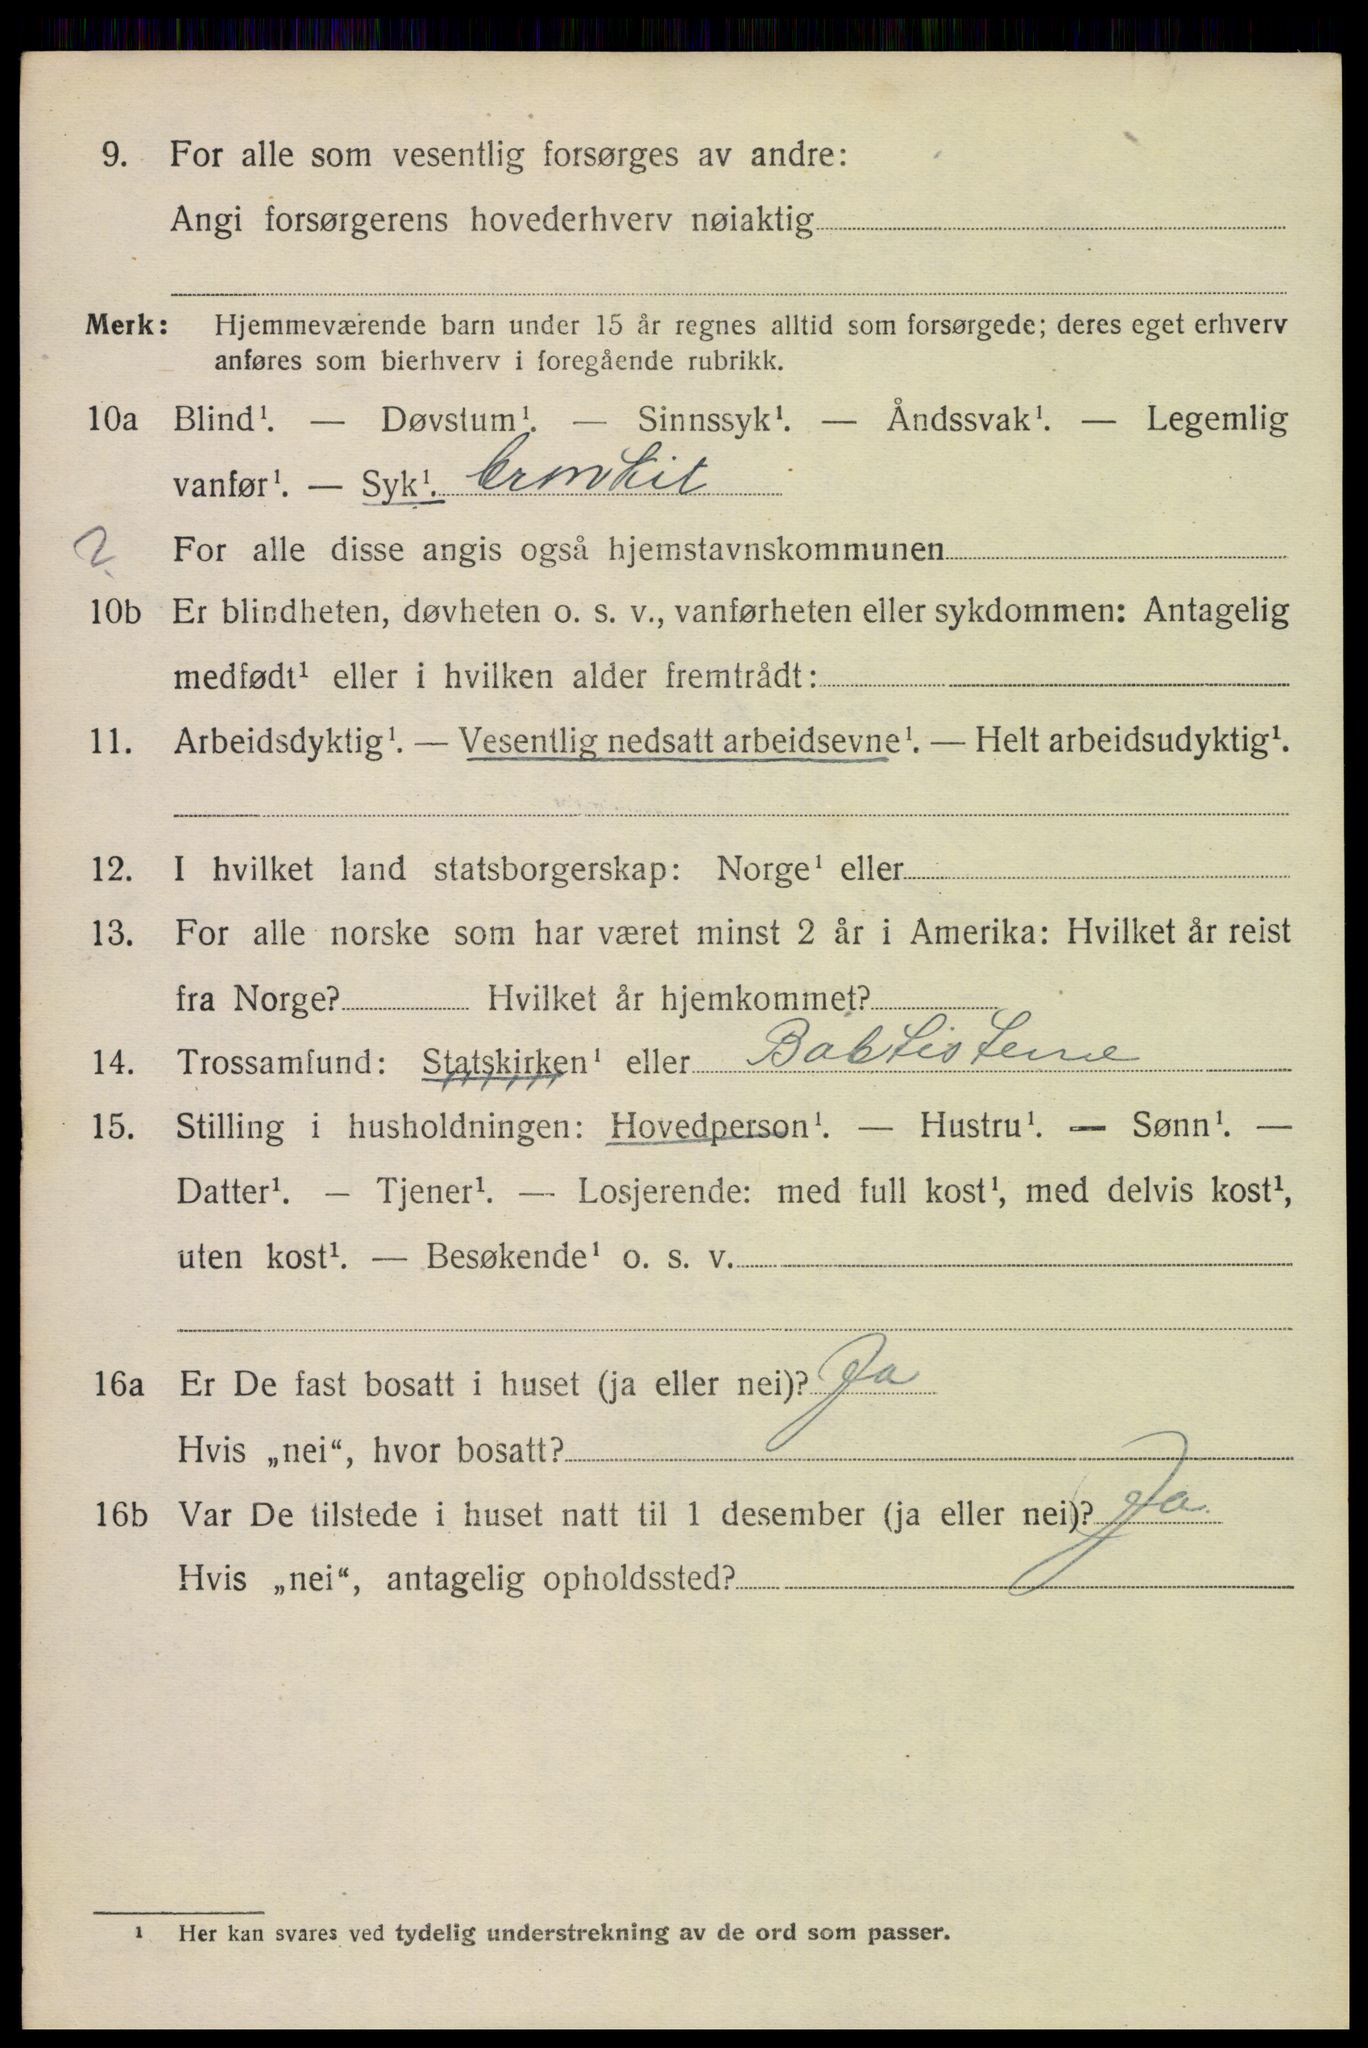 9. For alle som vesentlig forsørges av andre:
Angi forsørgerens hovederhverv nøiaktig
Merk: Hjemmeværende barn under 15 år regnes alltid som forsørgede; deres eget erhverv
anføres som bierhverv i foregående rubrikk.
10a Blind¹. — Døvstum¹. — Sinnssyk¹. — Åndssvak¹. — Legemlig
vanfør¹. — Syk¹. bronkit
? For alle disse angis også hjemstavnskommunen
10b Er blindheten, døvheten o. s. v., vanførheten eller sykdommen: Antagelig
medfødt¹ eller i hvilken alder fremtrådt:
11. Arbeidsdyktig¹. — Vesentlig nedsatt arbeidsevne¹. — Helt arbeidsudyktig¹.
12. I hvilket land statsborgerskap: Norge¹ eller
13. For alle norske som har været minst 2 år i Amerika: Hvilket år reist
fra Norge? Hvilket år hjemkommet?
14. Trossamfund: Statskirken¹ eller Babtisterne
15. Stilling i husholdningen: Hovedperson¹. — Hustru¹. — Sønn¹. —
Datter¹. — Tjener¹. — Losjerende: med full kost¹, med delvis kost¹,
uten kost¹. — Besøkende¹ o. s. v.
16a Er De fast bosatt i huset (ja eller nei)? Ja
Hvis „nei“, hvor bosatt?
16b Var De tilstede i huset natt til 1 desember (ja eller nei)? Ja
Hvis „nei“, antagelig opholdssted?
¹ Her kan svares ved tydelig understrekning av de ord som passer.